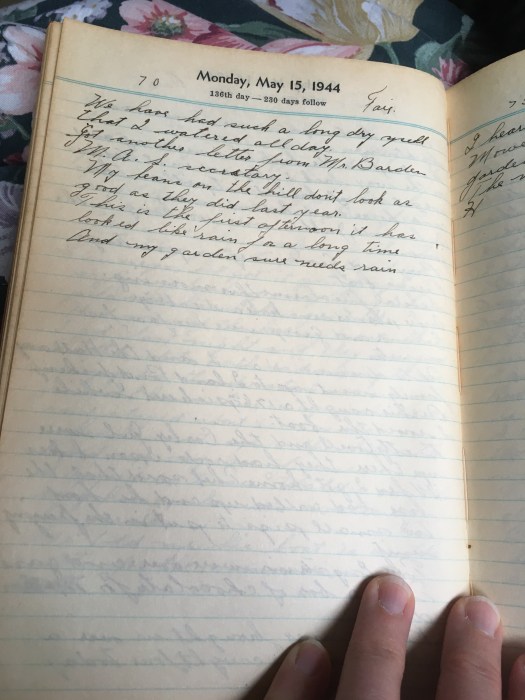 Monday, May 15, 1944
136th day—230 days follow
70 Fair.
We have had such a long dry spell
that I watered all day.
Got another letter from Mr. Barden
M. A. S. secretary.
My beans on the hill don't look as
good as they did last year.
This is the first afternoon it has
looked like rain for a long time
And my garden sure needs rain
7
I hear
Mowe
garden
The
H